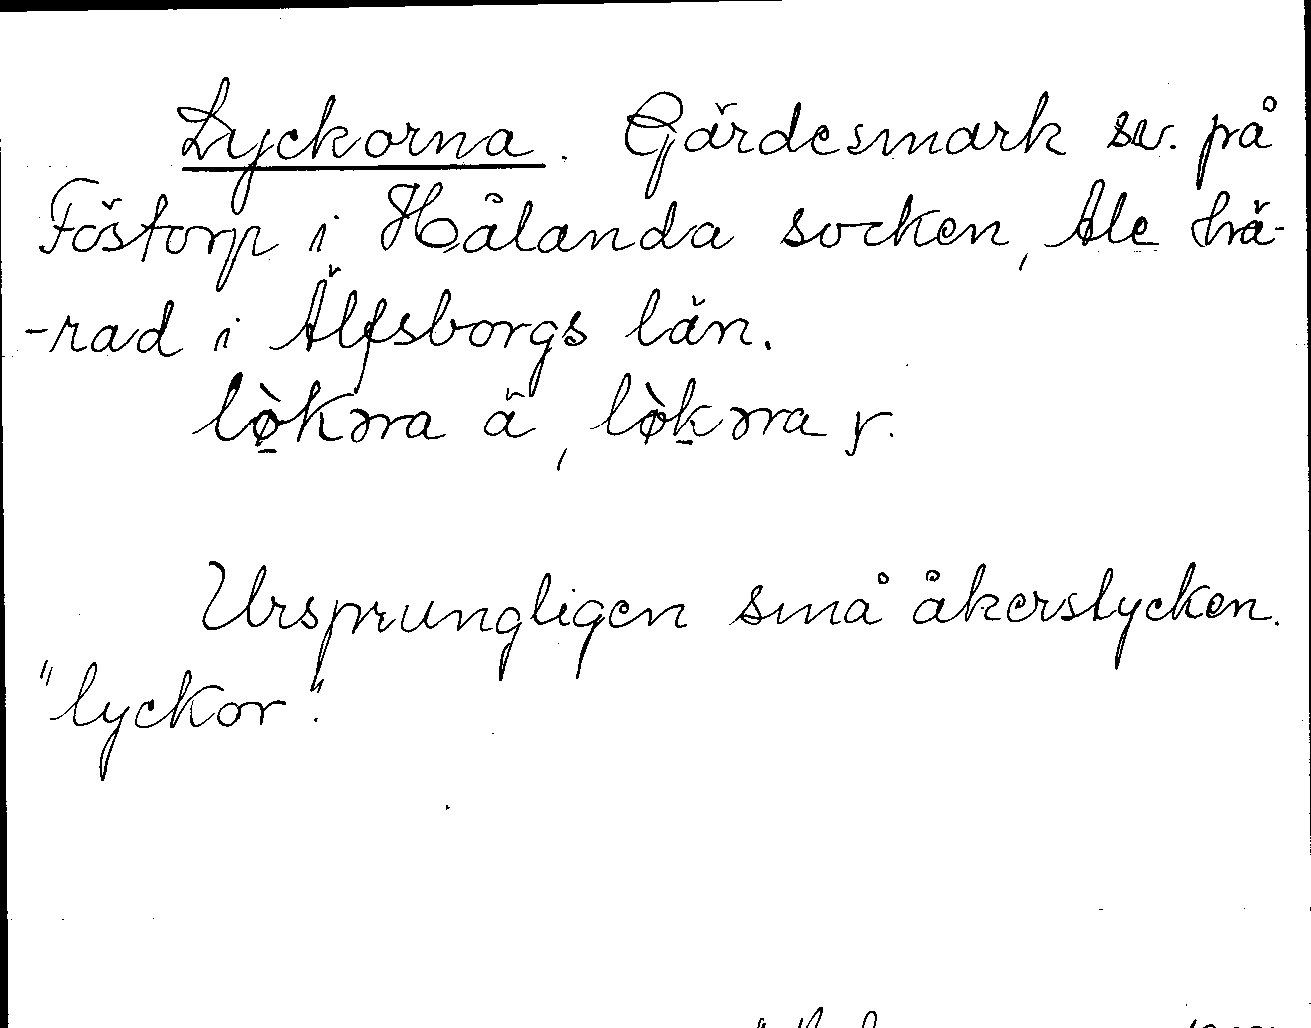 Lyckorna. Gärdesmark sv. på
Föstorp i Hålanda socken, Ale hä-
-rad i Älfsborgs län.
lø̀kəra ä, lø̀kəra y.
Ursprungligen små åkerstycken.
"lyckor".